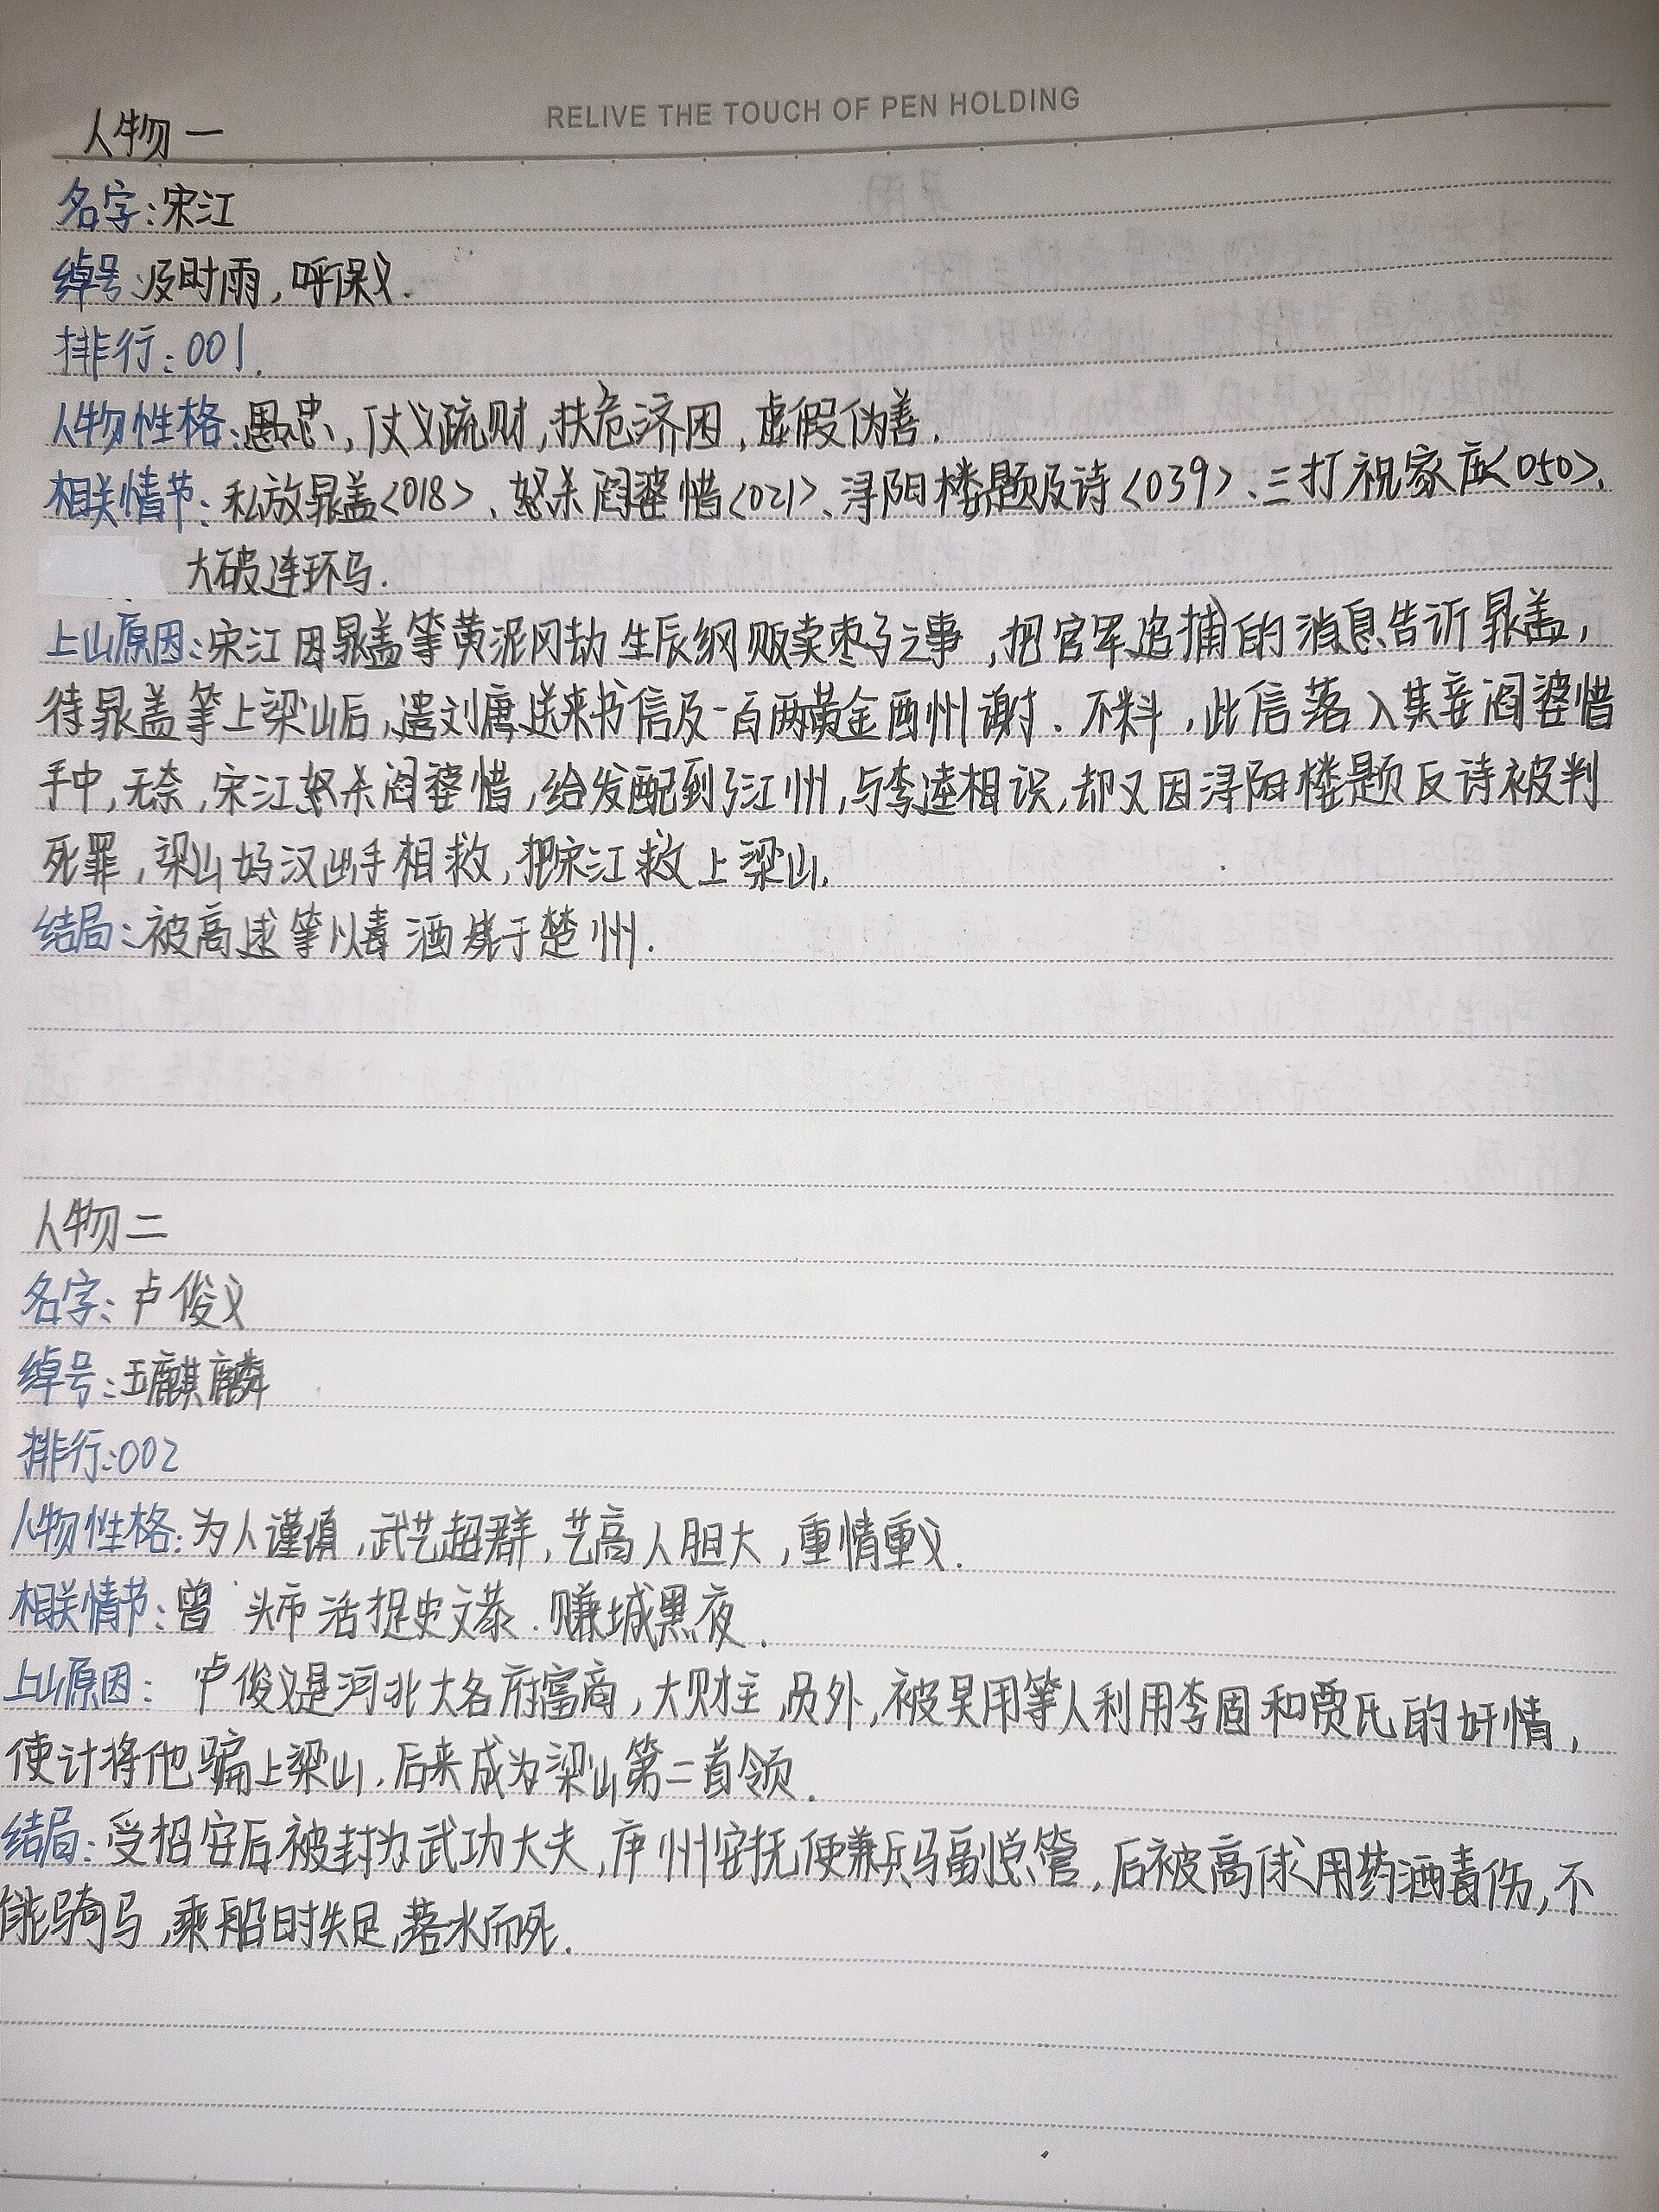 RELIVE THE TOUCH OF PEN HOLDING
人物一
名字:宋江
绰号:及时雨,呼保义.
排行:001.
人物性格:愚忠,仗义疏财,扶危济困,虚假伪善.
相关情节:私放晁盖<018>、怒杀阎婆惜<021>、浔阳楼题反诗<039>、三打祝家庄<050>、
大破连环马.
上山原因:宋江因晁盖等黄泥冈劫生辰纲贩卖枣子之事,把官军追捕的消息告诉晁盖,
待晁盖等上梁山后,遣刘唐送来书信及一百两黄金酉州谢.不料,此信落入其妾阎婆惜
手中,无奈,宋江怒杀阎婆惜,给发配到了江州,与李逵相识,却又因浔阳楼题反诗被判
死罪,梁山好汉出手相救,把宋江救上梁山.
结局:被高俅等以毒酒毙于楚州.
人物二
名字:卢俊义
绰号:玉麒麟
排行:002
人物性格:为人谨慎,武艺超群,艺高人胆大,重情重义.
相关情节:曾头市活捉史文恭.赚城黑夜.
上山原因:卢俊义是河北大名府富商,大财主,员外,被吴用等人利用李固和贾氏的奸情,
使计将他骗上梁山,后来成为梁山第二首领.
结局:受招安后被封为武功大夫,庐州安抚使兼兵马副总管,后被高俅用药酒毒伤,不
能骑马,乘船时失足,落水而死.